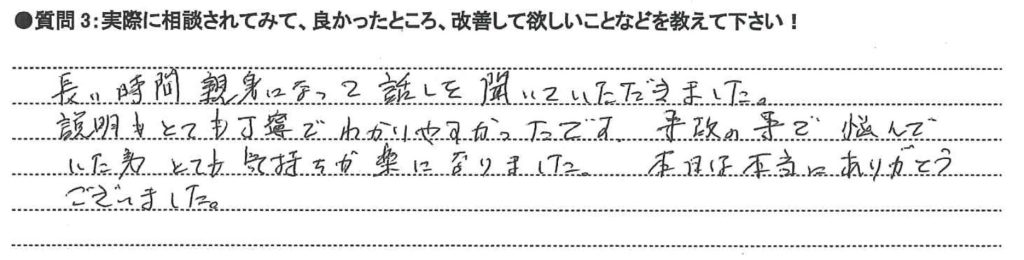 ●質問3:実際に相談されてみて、良かったところ、改善して欲しいことなどを教えて下さい!
長い時間 親身になって 話しを 聞いていただきました。
説明もとても丁寧で わかりやすかったです. 事故の事で 悩んで
いた為 とても 気持ちが 楽に なりました。 本日は本当に ありがとう
ございました。